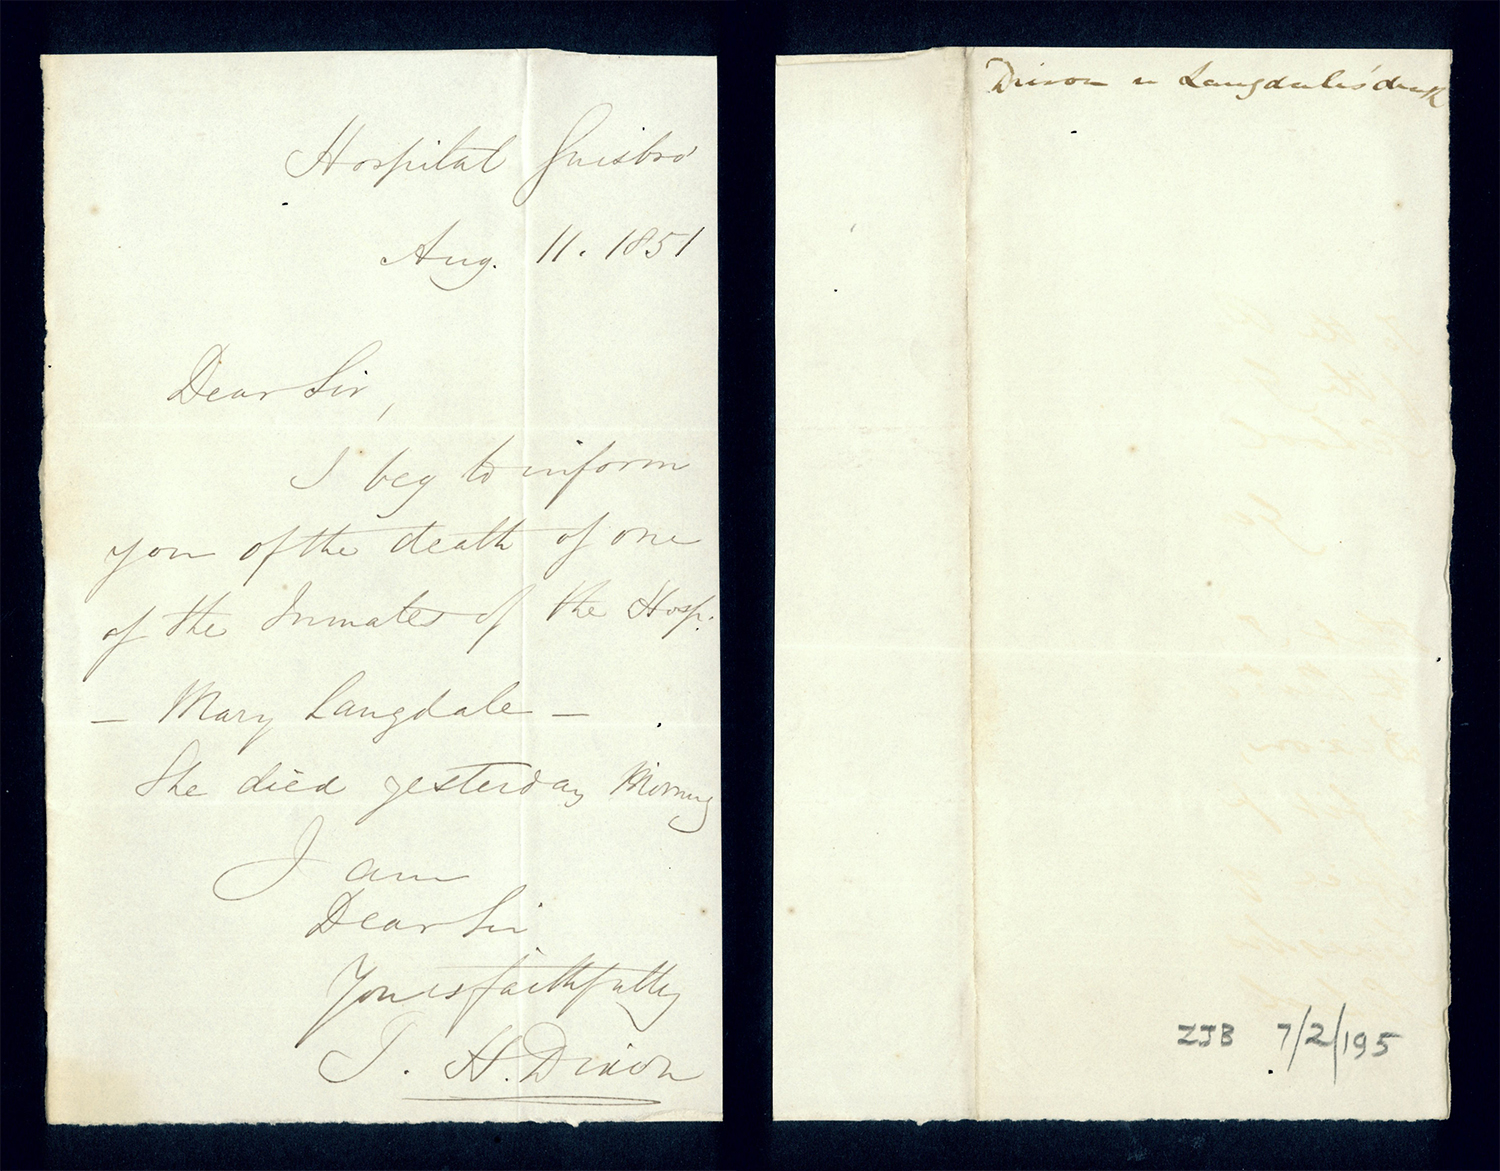 Hospital Guisbro'
Aug. 11. 1851
Dear Sir,
I beg to inform
you of the death of one
of the Inmates of the Hosp.
— Mary Langdale —
She died yesterday Morning
I am
Dear Sir
Yours faithfully
T. H. Dixon
Dixon Langdale's death
ZJB 7/2/195